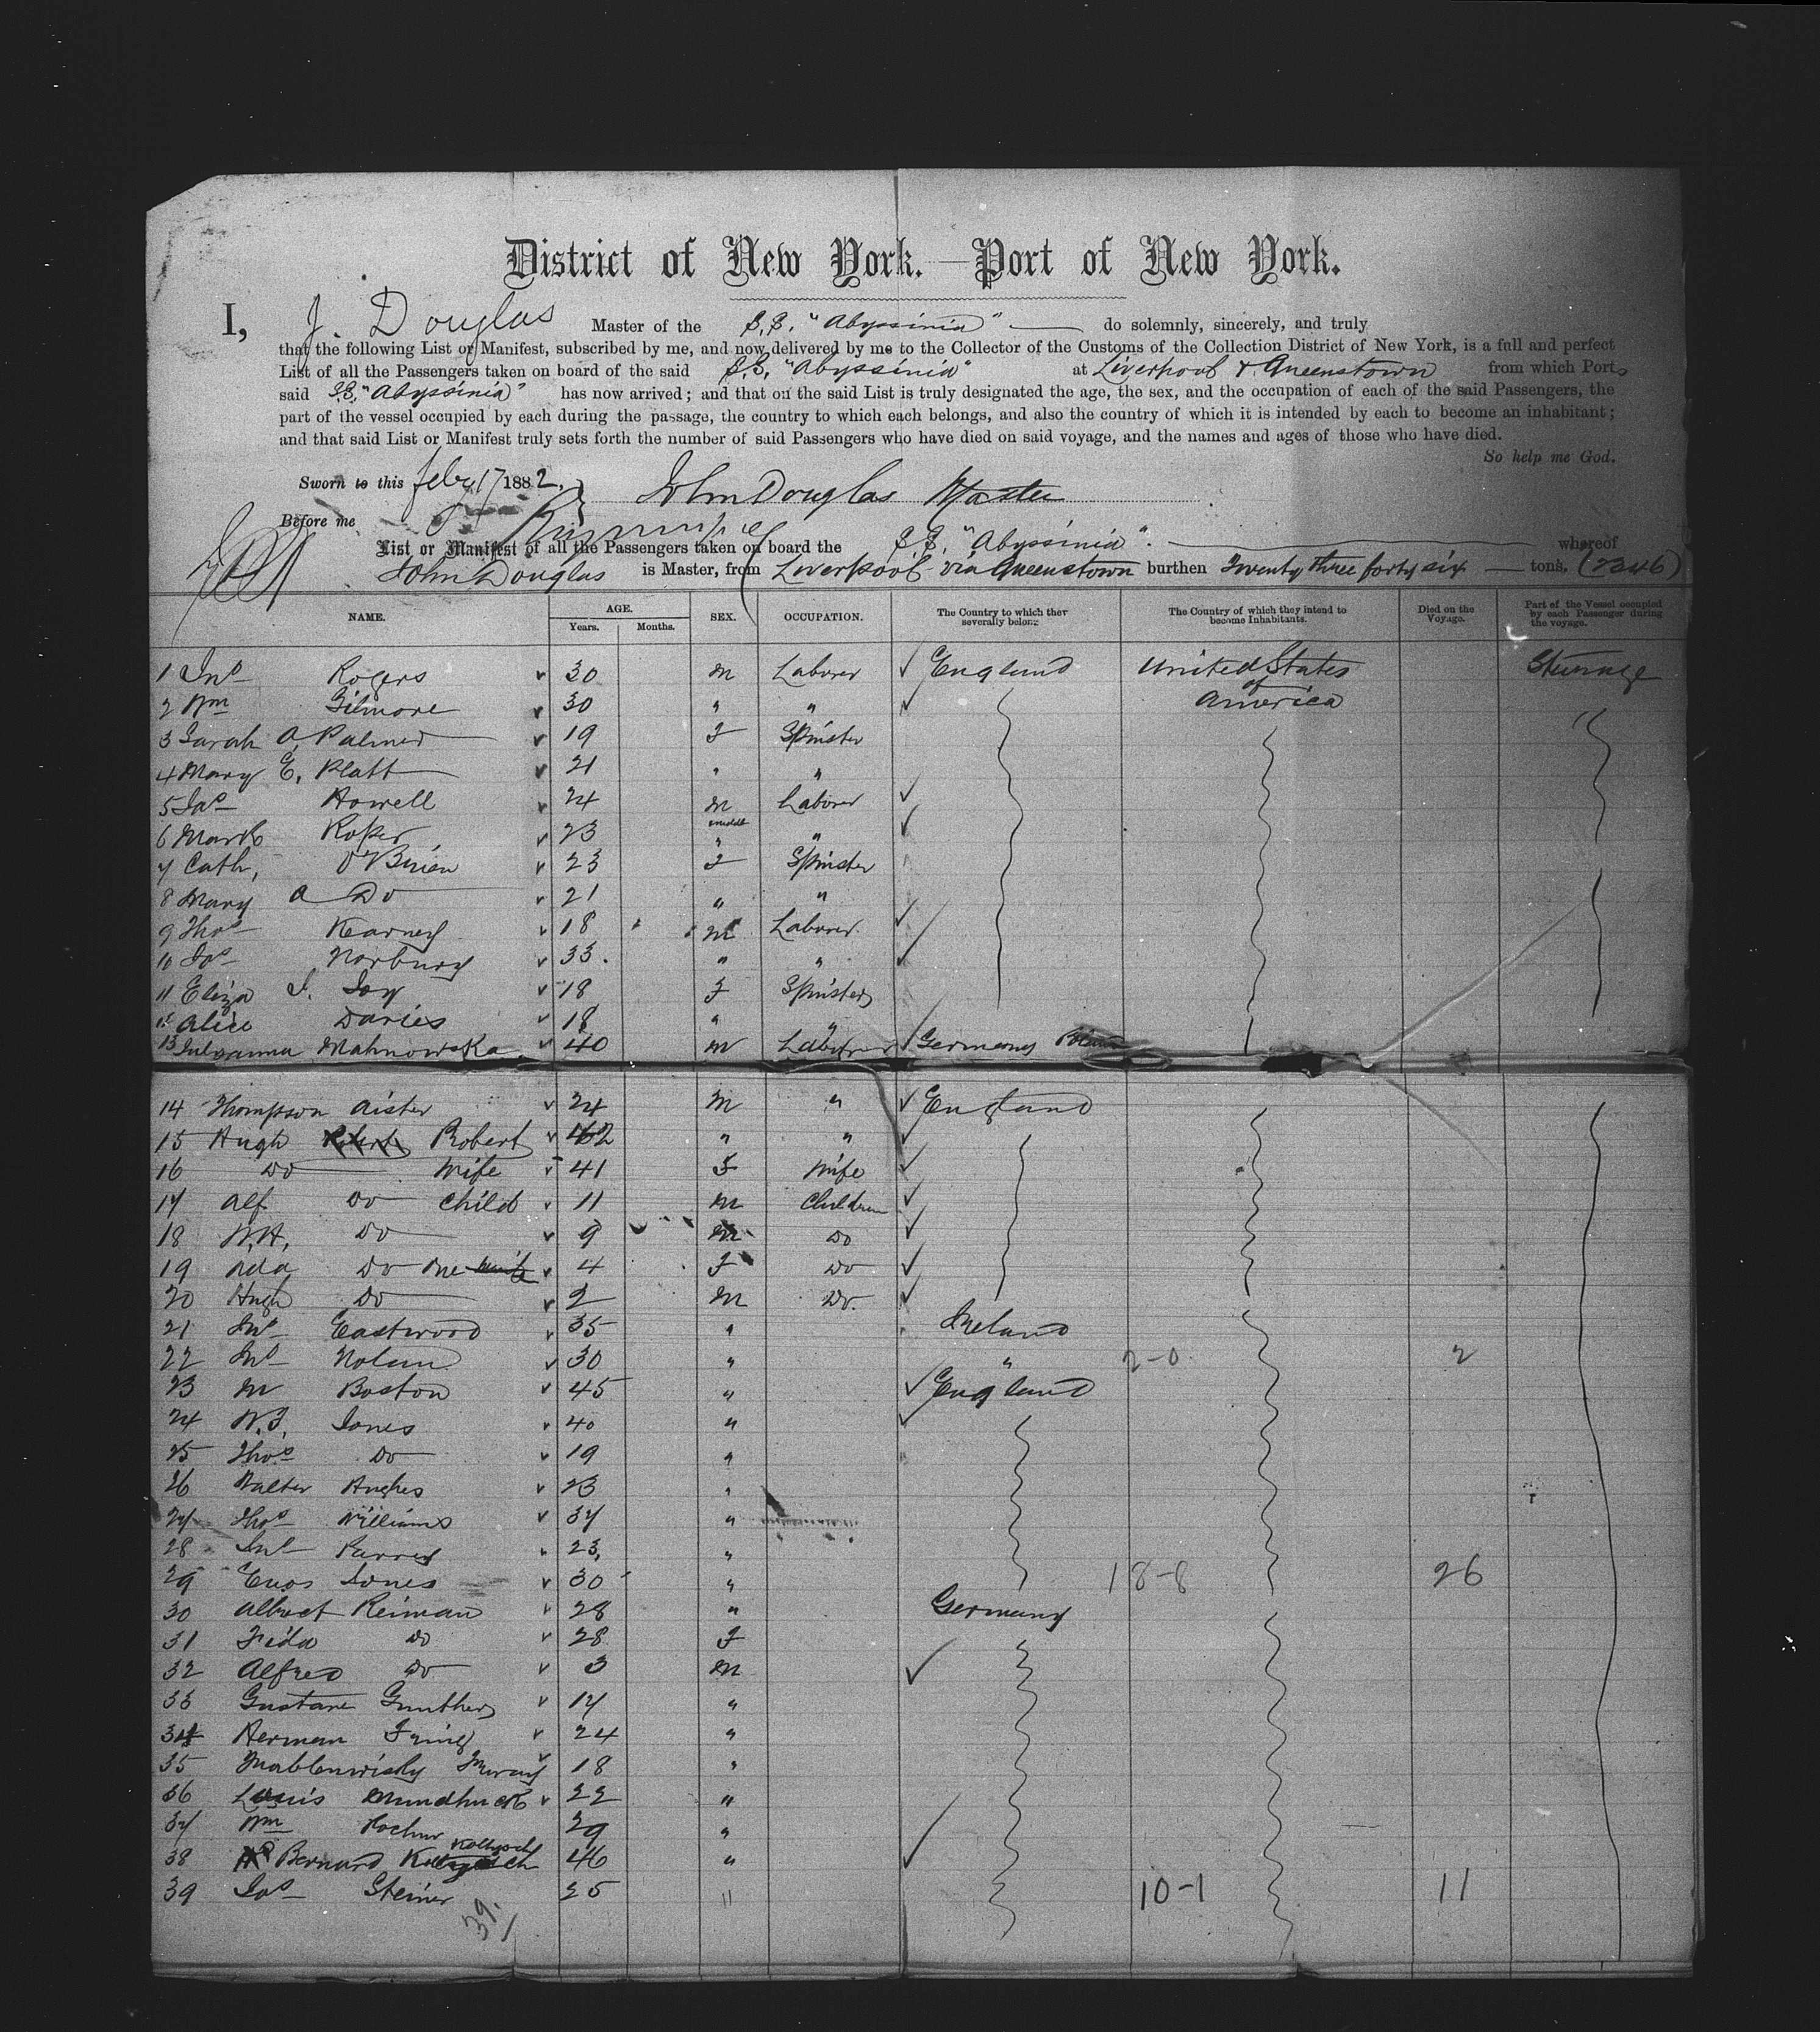 District of New York.—Port of New York.
I, J. Douglas Master of the S.S. "Abyssinia" do solemnly, sincerely, and truly
that the following List or Manifest, subscribed by me, and now delivered by me to the Collector of the Customs of the Collection District of New York, is a full and perfect
List of all the Passengers taken on board of the said S.S. "Abyssinia" at Liverpool & Queenstown from which Ports
said S.S. "Abyssinia" has now arrived; and that on the said List is truly designated the age, the sex, and the occupation of each of the said Passengers, the
part of the vessel occupied by each during the passage, the country to which each belongs, and also the country of which it is intended by each to become an inhabitant;
and that said List or Manifest truly sets forth the number of said Passengers who have died on said voyage, and the names and ages of those who have died.
So help me God.
Sworn to this Feby 17 1882. John Douglas Master
Before me
List or Manifest of all the Passengers taken on board the S.S. "Abyssinia". whereof
John Douglas is Master, from Liverpool via Queenstown burthen Twenty three forty six tons. (2346)
NAME. AGE. SEX. OCCUPATION. The Country to which they severally belong. The Country of which they intend to become Inhabitants. Died on the Voyage. Part of the Vessel occupied by each Passenger during the voyage.
Years. Months.
1 Jno Rogers 30 M Laborer England United States of America Steerage
2 Wm Gilmore 30 " "
3 Sarah A Palmer 19 F Spinster
4 Mary E. Platt 21 " "
5 Jas Howell 24 M Laborer
6 Mark Roper 23 " "
7 Cath, O'Brien 23 F Spinster
8 Mary A Do 21 " "
9 Thos Kearney 18 M Laborer
10 Jos Norbury 33. " "
11 Eliza J. Joy 18 F Spinster
12 Alice Davies 18 " "
13 Mahnowska 40 M Laborer Germany Poland
14 Thompson Aister 24 M " England
15 Hugh Robert 42 " "
16 Do Wife 41 F Wife
17 Alf Do Child 11 M Children
18 W.H. Do 9 M Do
19 Ada Do 4 F Do
20 Hugh Do 2 M Do.
21 Jno Eastwood 35 " Ireland
22 Jno Nolan 30 " " 2-0 2
23 M Boston 45 " England
24 W.J. Jones 40 "
25 Thos Do 19 "
26 Walter Hughes 23 "
27 Thos Williams 37 "
28 Jno Parry 23, "
29 Enos Jones 30 " 18-8 26
30 Albert Reiman 28 " Germany
31 Frida Do 28 F
32 Alfred Do 3 M
33 Gustave Gunther 17 "
34 Herman 24 "
35 18 "
36 Louis 22 "
37 Wm 29 "
38 Bernard 46 "
39 Jos Steiner 25 " 10-1 11
39.